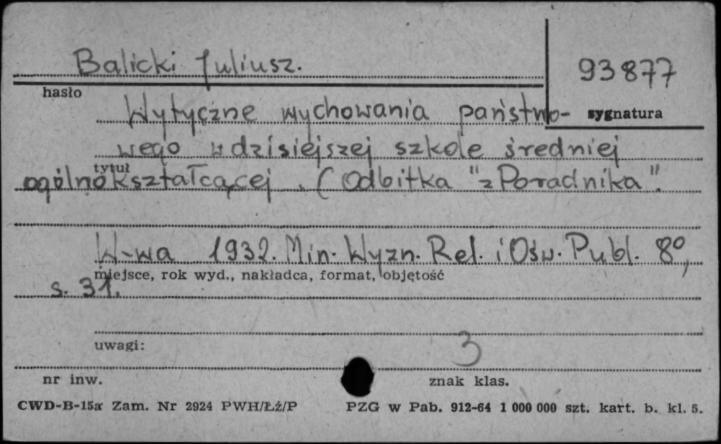 Balicki Juliusz.
93877
hasło
sygnatura
Wytyczne wychowania państwo-
wego w dzisiejszej szkole średniej
tytuł
ogólnokształcącej. (Odbitka "z Poradnika".
W-wa 1932. Min. Wyzn. Rel. i Ośw. Publ. 8º,
miejsce, rok wyd., nakładca, format, objętość
s. 31.
uwagi:
3
nr inw.
znak klas.
CWD-B-15a Zam. Nr 2924 PWH/Łż/P
PZG w Pab. 912-64 1 000 000 szt. kart. b. kl. 5.